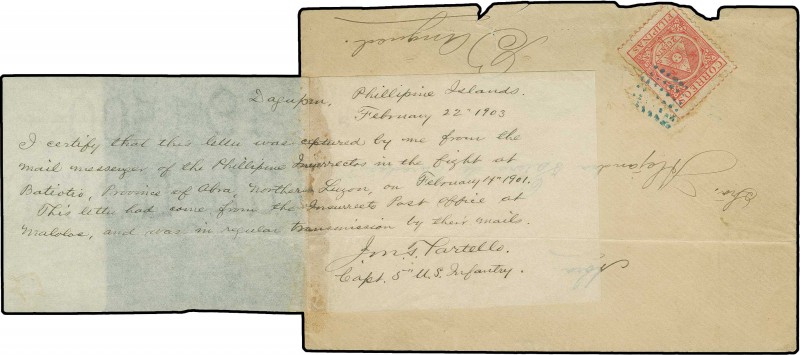 Dagupan, Phillipine Islands.
February 22" 1903
I certify that this letter was captured by me from the
mail messenger of the Phillipine Insurrectos in the fight at
Batiotio, Province of Abra, Northern Luzon, on February 14" 1901.
This letter had come from the Insurrects Post office at
Malolos, and was in regular transmission by their mails.
Jno. S. Partello.
Capt. 5" U.S. Infantry.
CORREOS
FILIPINAS
Alejandro
Sr.
Abra